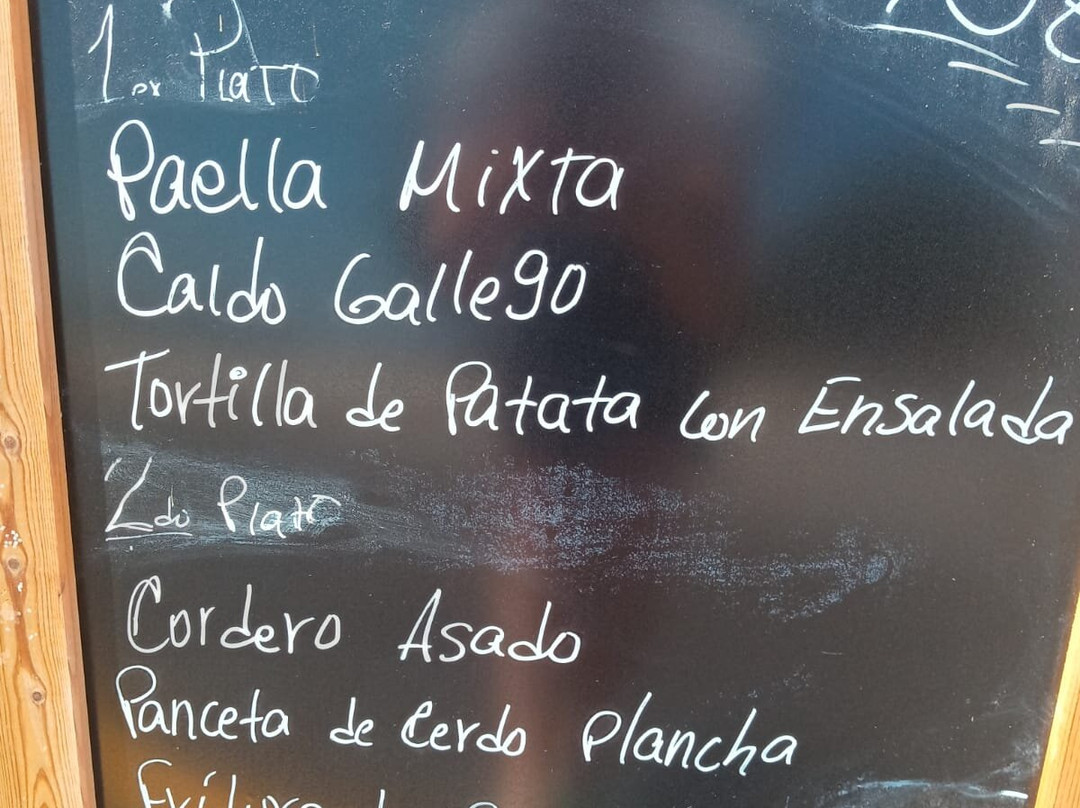 1er Plato
Paella Mixta
Caldo Gallego
Tortilla de Patata con Ensalada
2do Plato
Cordero Asado
Panceta de Cerdo Plancha